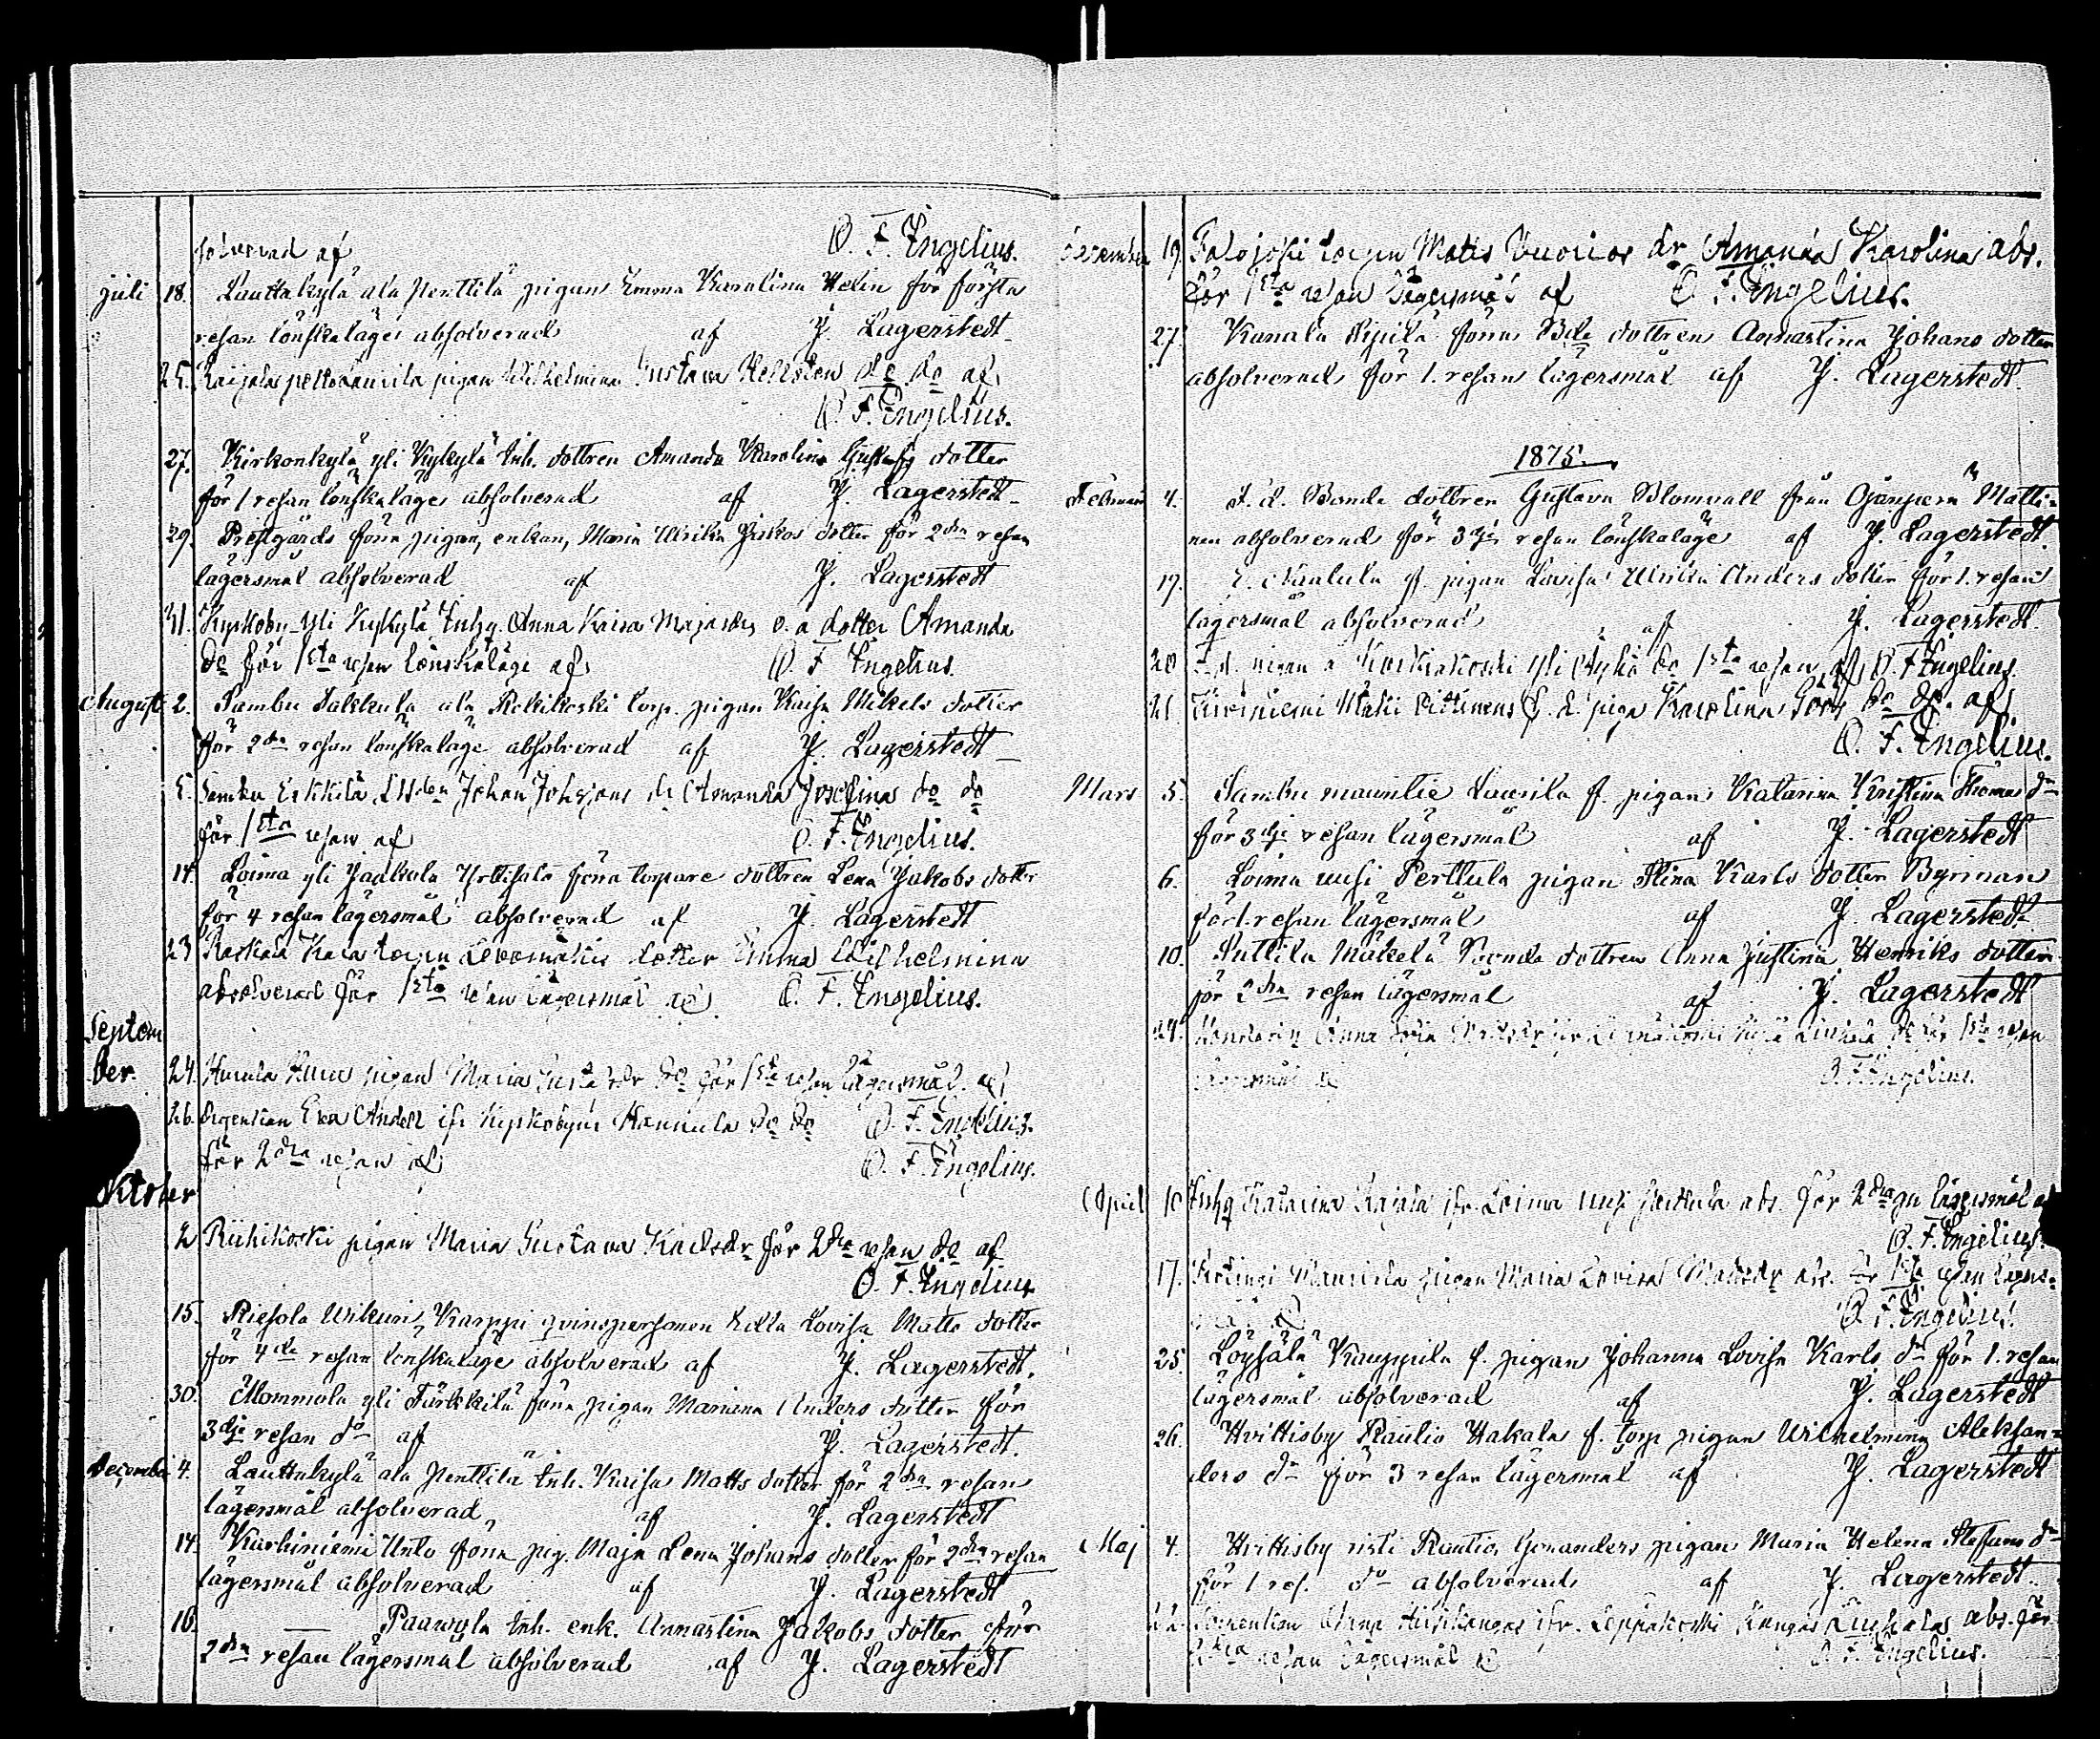 solverad af O. F. Engelius.
juli 18. Lauttakylä ala Penttilä pigan Emma Karolina Helin för första
resan lönskaläge absolverad af J. Lagerstedt
25. pigan Wilhelmina Gustava Hellsten do do af
O. F. Engelius.
27. Kirkonkylä yli Kykylä Inh. dottren Amanda Karolina Gustafs dotter
för 1 resan lönskaläge absolverad af J. Lagerstedt
29. Prestgårds förra pigan, enkan, Maria Ulrika Jiskos dotter för 2dra resan
lägersmål absolverad af J. Lagerstedt
31. Kyrkoby Yli Kykylä Inhq. Anna Kaisa Majasdr o. ä dotter Amanda
do för 1sta resan lönskaläge af O. F. Engelius.
August 2. Sambu ala Rekikoski torp. pigan Kaisa Mikels dotter
för 2dra resan lönskaläge absolverad af J. Lagerstedt
5. Sambu Eskkilä Johan Johssons dr Amanda Josefina do do
för 1sta resan af O. F. Engelius.
14. Loima yli Jaakola förra torpare dottren Lena Jakobs dotter
för 4 resan lägersmål absolverad af J. Lagerstedt
23 torpen dotter Emma Wilhelmina
absolverad för 1sta resan lägersmål af O. F. Engelius.
Septem
ber. 24. pigan Maria do för 1sta resan lägersmål. af
O. F. Engelius.
26. Eva Andell ifr Kyrkobyns Hannula do do
för 2dra resan af O. F. Engelius.
Oktober
2 Riihikoski pigan Maria Gustava Karlsdr för 2dra resan do af
O. F. Engelius
15. Riesola Uskuri, Karppi qvinspersonen Lovisa Matts dotter
för 4de resan lönskaläge absolverad af J. Lagerstedt.
30. Mommola yli Türkkilä förra pigan Mariana Anders dotter för
3dje resan do af J. Lagerstedt.
December 4. Lauttakylä ala Penttilä Inh. Kaisa Matts dotter för 2dra resan
lägersmål absolverad af J. Lagerstedt
14. Karhiniemi Unto förra pig. Maja Lena Johans dotter för 2dra resan
lägersmål absolverad af J. Lagerstedt
16. Inh. enk. Annastina Jakobs dotter för
2dra resan lägersmål absolverad af J. Lagerstedt
December 19. torpen Matts dr Amanda Karolina abs.
för 1sta resan lägersmål af O. F. Engelius.
27. förra Bde dottren Annastina Johans dotter
absolverad för 1. resan lägersmål af J. Lagerstedt
1875.
Februari 4. F. d. Bonde dottren Gustava Blomvall från Ojanperä Matti-
nen absolverad för 3dje resan lönskaläge af J. Lagerstedt.
17. f. pigan Lovisa Ulrika Anders dotter för 1. resan
lägersmål absolverad af J. Lagerstedt.
20 F. d. pigan yli do 1sta resan af O. F. Engelius.
21. f. d. piga Karolina do do. af
O. F. Engelius.
Mars 5. Sambu f. pigan Katarina Kristina Thomas dr
för 3dje resan lägersmål af J. Lagerstedt
6. Loima uusi Perttula pigan Stina Karls dotter Byrman
för 1. resan lägersmål af J. Lagerstedt
10. Suttila Mäkelä Bonde dottren Anna Justina Henriks dotter
för 2dra resan lägersmål af J. Lagerstedt
24. Anna do för 1sta resan
lägersmål af O. F. Engelius.
April 10 Inhq Katarina ifr. Loima uusi Perttula abs. för 2dra gn lägersmål af
O. F. Engelius.
17. pigan Maria Lovisa Mattsdr abs. för 1sta resan lägers-
mål af O. F. Engelius.
25. Löysälä Kauppila f. pigan Johanna Lovisa Karls dr för 1. resan
lägersmål absolverad af J. Lagerstedt
26. Hvittisby Raulio Hakala f. torp pigan Wilhelmina Aleksan-
ders dr för 3 resan lägersmål af J. Lagerstedt
Maj 4. Hvittisby risti Rautio, pigan Maria Helena Staffans dr
för 1 res. do absolverad af J. Lagerstedt
ifr. Leppäkoski abs. för
resan lägersmål af O. F. Engelius.